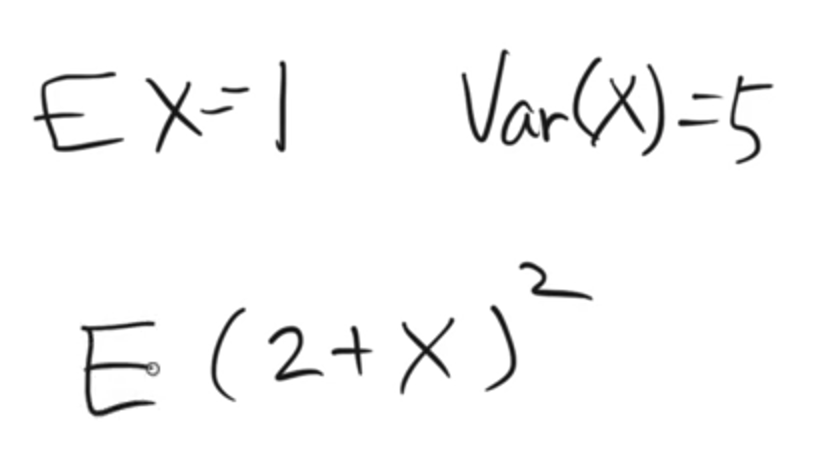 EX=1 Var(X)=5
E(2+X)²